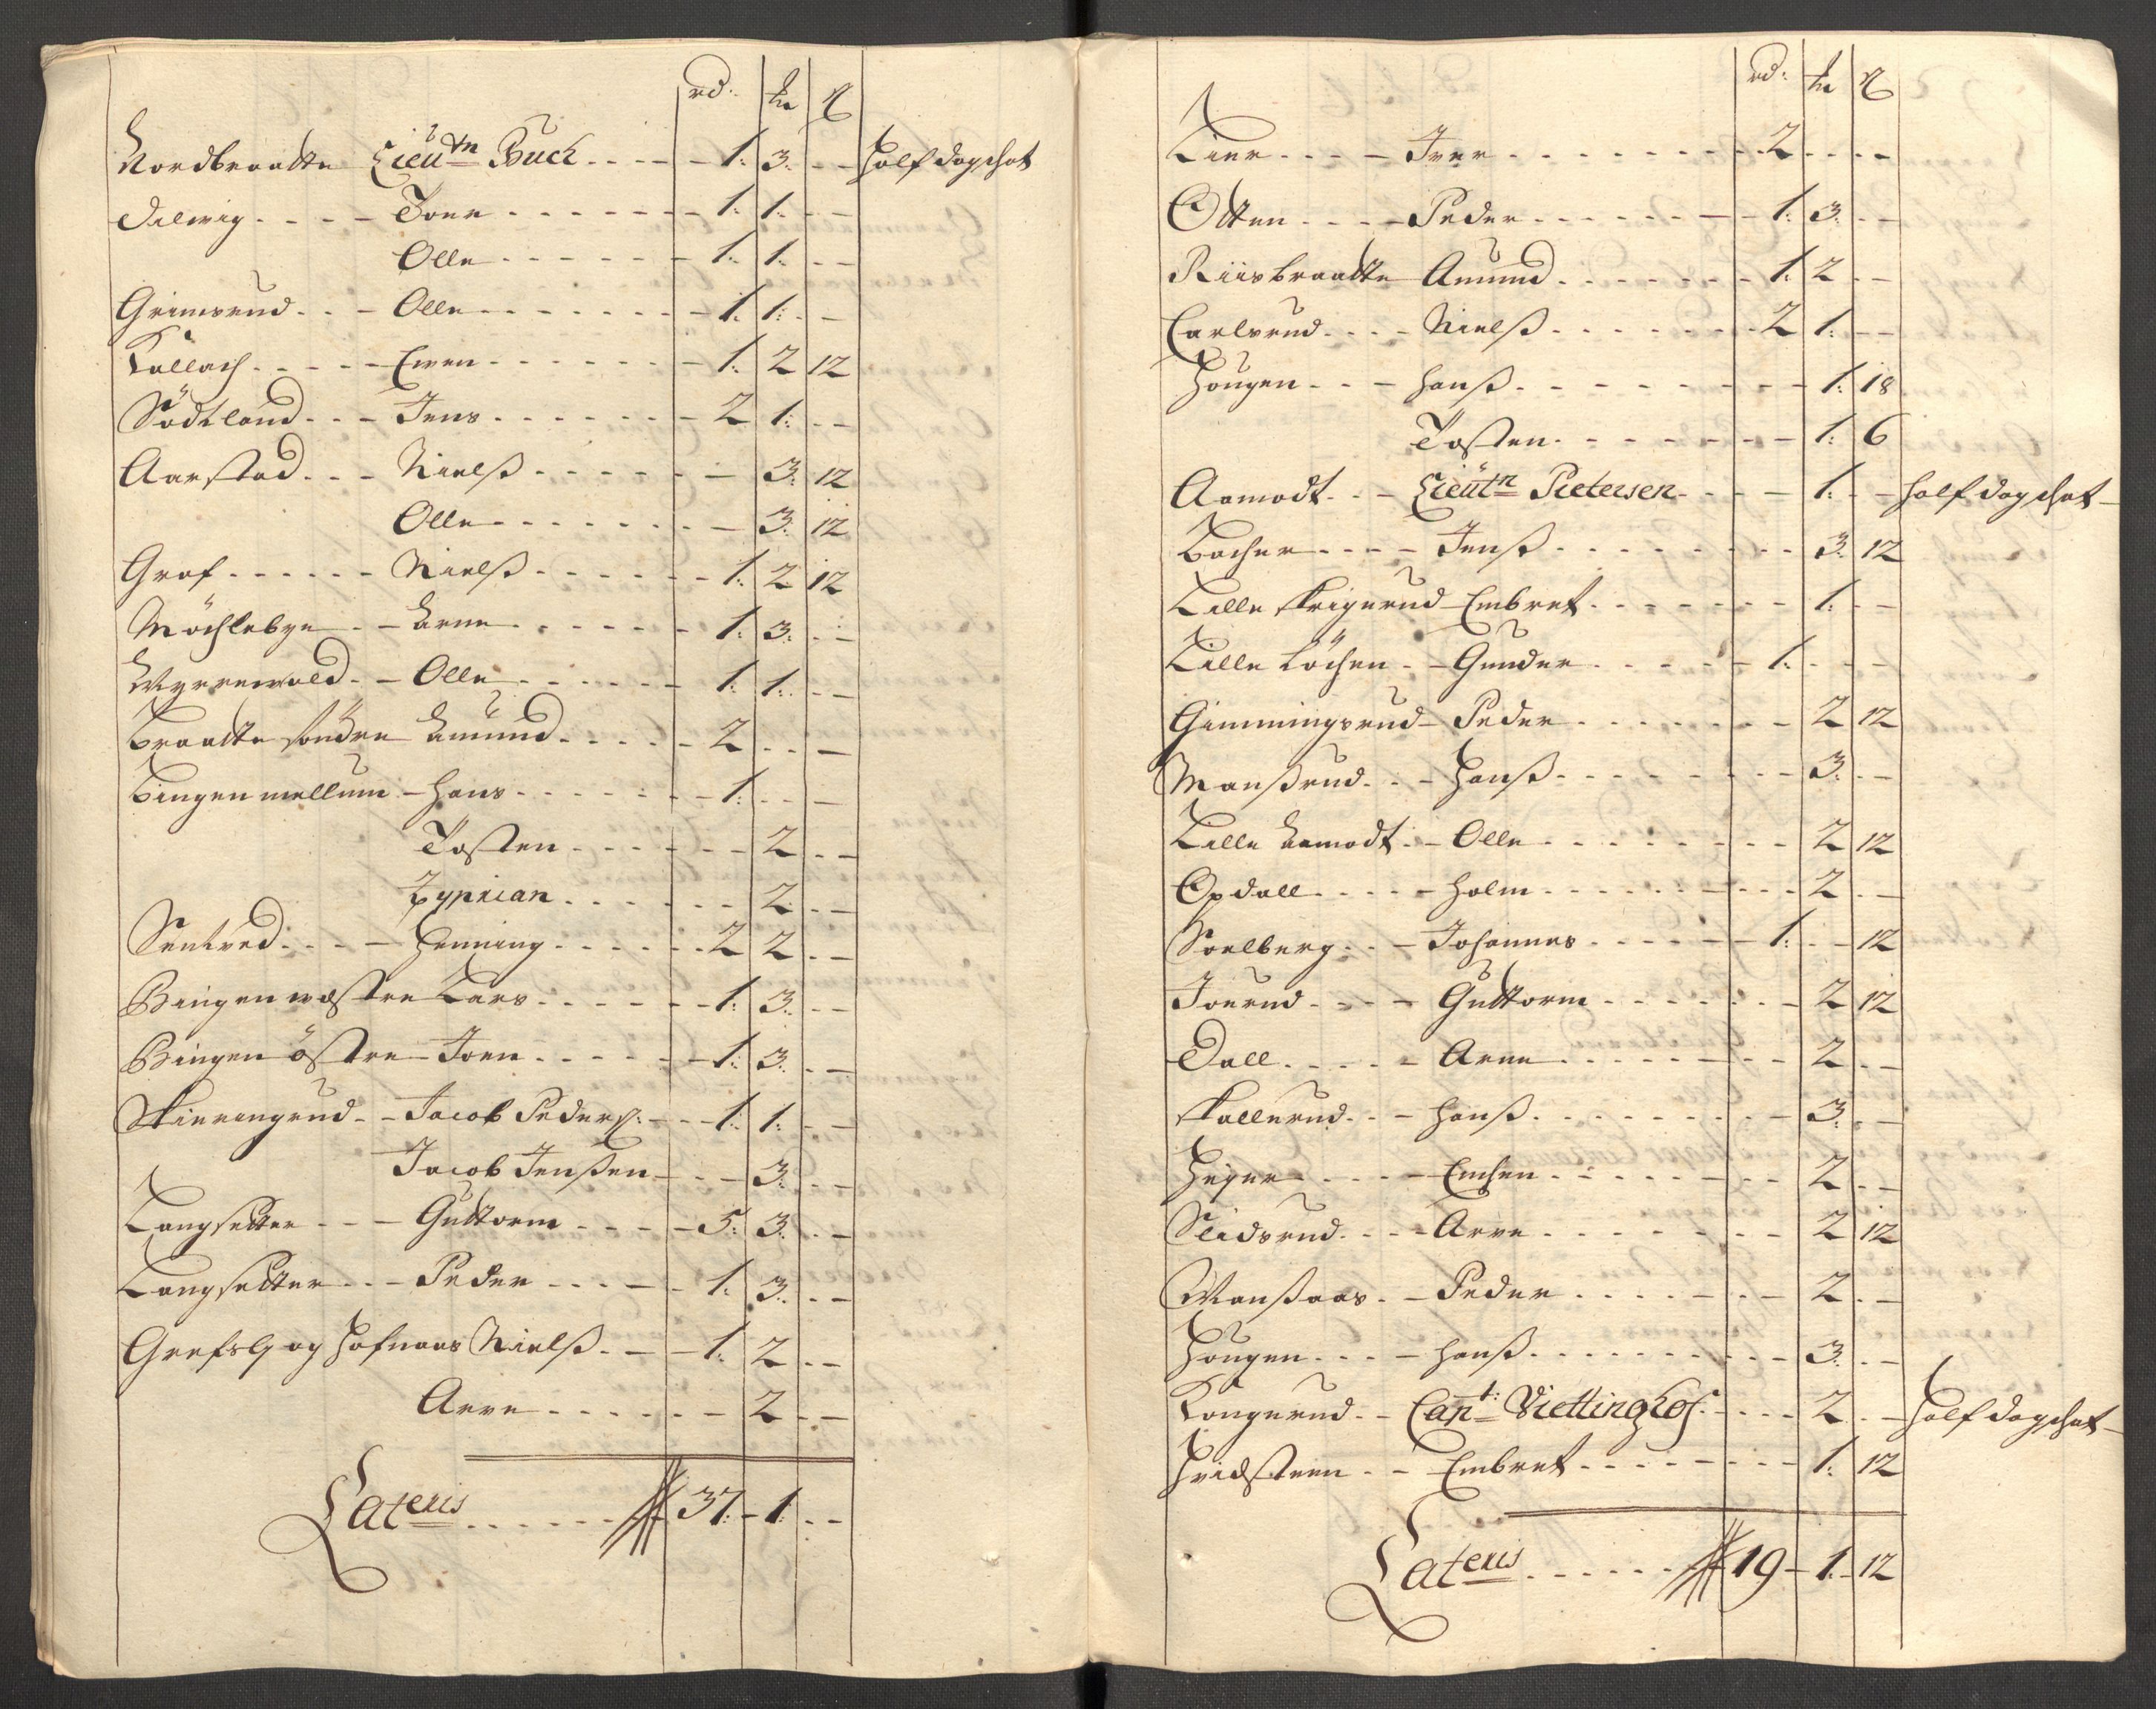 rd:
Nordbraatte Lieutn Buck - 1: 3: - half dagschat
Dilevig - Toer - 1: 1: -
Olle - 1: 1: -
Grimsrud - Olle - 1: 1: -
Kallach - Even - 1: 2 12
Södtland - Jens - 2 1: -
Aarstad - Nielß - 3: 12
Olle - 3: 12
Graf - Nielß - 1: 2 12
Möchlebye - Arne - 1: 3: -
Myrrevold - Olle - 1: 1: -
Braatte söndre Amund - 2 - -
Bingen mellum - Hans - 1: - -
Tosten - 2 -
Zyprian - 2 -
Sentved - Henning - 2 2 -
Bingen vestre Lars - 1: 3: -
Bingen östre - Joen - 1: 3: -
Skierengrud - Jacob Peders: - 1: 1: -
Jacob Jenßen - 3: -
Langsetter - Guttorm - 5: 3: -
Langsetter - Peder - 1: 3: -
Grefslj og Hofnaas Nielß - 1: 2 -
Arve - 2 -
Lateris - 37: - 1: -
rd:
Lier - Iver - 2 - -
Otten - Peder - 1: 3: -
Riisbraatte Amund - 1: 2 -
Carlsrud - Nielß - 2 1: -
Hougen - Hanß - 1: 18
Tosten - 1: 6
Aamodt - Lieutn Pietersen - 1: - half dagschat
Bacher - Jenß - 3: 12
Lille Skrigerud Embret - 1: -
Lille Löchen - Gunder - 1: - -
Gimmingsrud - Peder - 2 12
Manßrud - Hanß - 3: -
Lille Aamodt - Olle - 2 12
Opdall - Holm - 2 -
Soelberg - Johannes - 1: - 12
Joerud - Guttorm - 2 12
Dall - Arne - 2 -
Skallerud - Hanß - 3: -
Heyer - Enchen - 2 -
Slidsrud - Arve - 2 12
Manßaas - Peder - 2 -
Hougen - Hanß - 3: -
Kongerud - Capt: Viettinghof - 2 - half dagschat
Hvidsteen - Embret - 1: 12
Lateris - 19 - 1: 12